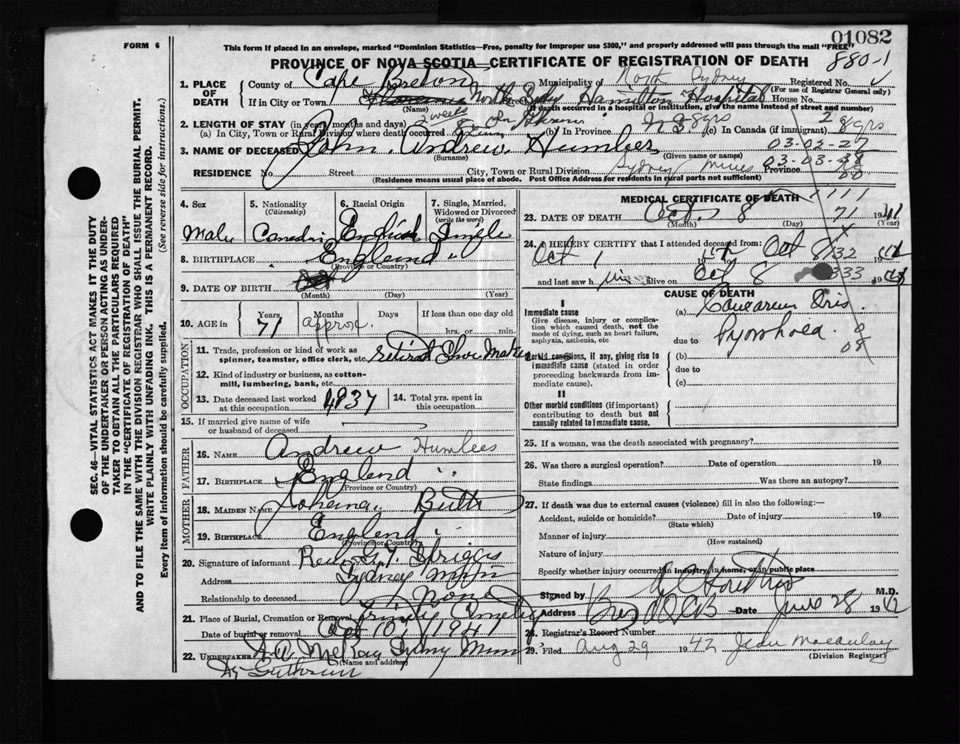 FORM 6
This form if placed in an envelope, marked "Dominion Statistics—Free, penalty for improper use $300," and properly addressed will pass through the mail "FREE"
01082
PROVINCE OF NOVA SCOTIA—CERTIFICATE OF REGISTRATION OF DEATH
880-1
1. PLACE OF DEATH
County of Cape Breton
Municipality of North Sydney
Registered No.
(For use of Registrar General only)
If in City or Town
(Name)
Hamilton Hospital
House No.
(If death occurred in a hospital or institution, give the name instead of street and number)
2. LENGTH OF STAY (in years, months and days) 2 weeks
(a) In City, Town or Rural Division where death occurred
(b) In Province
N S
(c) In Canada (if immigrant)
28 yrs
3. NAME OF DECEASED John Andrew Humber
(Surname)
(Given name or names)
03-03-27
03-03-28
RESIDENCE No.
Street
City, Town or Rural Division Sydney Mines
Province
(Residence means usual place of abode. Post Office Address for residents in rural parts not sufficient)
4. Sex
Male
5. Nationality
(Citizenship)
6. Racial Origin
English
7. Single, Married, Widowed or Divorced
(write the word)
Single
8. BIRTHPLACE England
(Province or Country)
9. DATE OF BIRTH
(Month) (Day) (Year)
10. AGE in
Years Months Days
71 approx.
If less than one day old
hrs. or min.
OCCUPATION
11. Trade, profession or kind of work as spinner, teamster, office clerk, etc. retired Shoe Maker
12. Kind of industry or business, as cotton-mill, lumbering, bank, etc.
13. Date deceased last worked at this occupation 1937
14. Total yrs. spent in this occupation
15. If married give name of wife or husband of deceased
FATHER
16. NAME Andrew Humbes
17. BIRTHPLACE England
(Province or Country)
MOTHER
18. MAIDEN NAME Butt
19. BIRTHPLACE England
(Province or Country)
20. Signature of informant
Address Sydney Mines
Relationship to deceased None
21. Place of Burial, Cremation or Removal Trinity Cemetery
Date of burial or removal Oct 10 1941
22. UNDERTAKER McKay Sydney Mines
(Name and Address)
MEDICAL CERTIFICATE OF DEATH
23. DATE OF DEATH Oct. 8 1941
(Month) (Day) (Year)
71
24. I HEREBY CERTIFY that I attended deceased from:
Oct 1
Oct 8
and last saw h im alive on Oct 8
332
333
CAUSE OF DEATH
I
Immediate cause
Give disease, injury or complication which caused death, not the mode of dying, such as heart failure, asphyxia, asthenia, etc
(a)
due to
Pyorrhoea
Morbid conditions, if any, giving rise to immediate cause (stated in order proceeding backwards from immediate cause).
(b)
due to
(c)
II
Other morbid conditions (if important) contributing to death but not causally related to immediate cause.
25. If a woman, was the death associated with pregnancy?
26. Was there a surgical operation? Date of operation 19
State findings Was there an autopsy?
27. If death was due to external causes (violence) fill in also the following:—
Accident, suicide or homicide? Date of injury 19
(State which)
Manner of injury
(How sustained)
Nature of injury
Specify whether injury occurred in industry, in home, or in public place
Signed by M.D.
Address Date June 28 1942
28. Registrar's Record Number
29. Filed Aug 29 1942 Macaulay
(Division Registrar)
SEC. 46—VITAL STATISTICS ACT MAKES IT THE DUTY
OF THE UNDERTAKER OR PERSON ACTING AS UNDERTAKER TO OBTAIN ALL THE PARTICULARS REQUIRED
IN THE "CERTIFICATE OF REGISTRATION OF DEATH"
AND TO FILE THE SAME WITH THE DIVISION REGISTRAR WHO SHALL ISSUE THE BURIAL PERMIT.
WRITE PLAINLY WITH UNFADING INK. THIS IS A PERMANENT RECORD.
Every item of information should be carefully supplied. (See reverse side for instructions.)